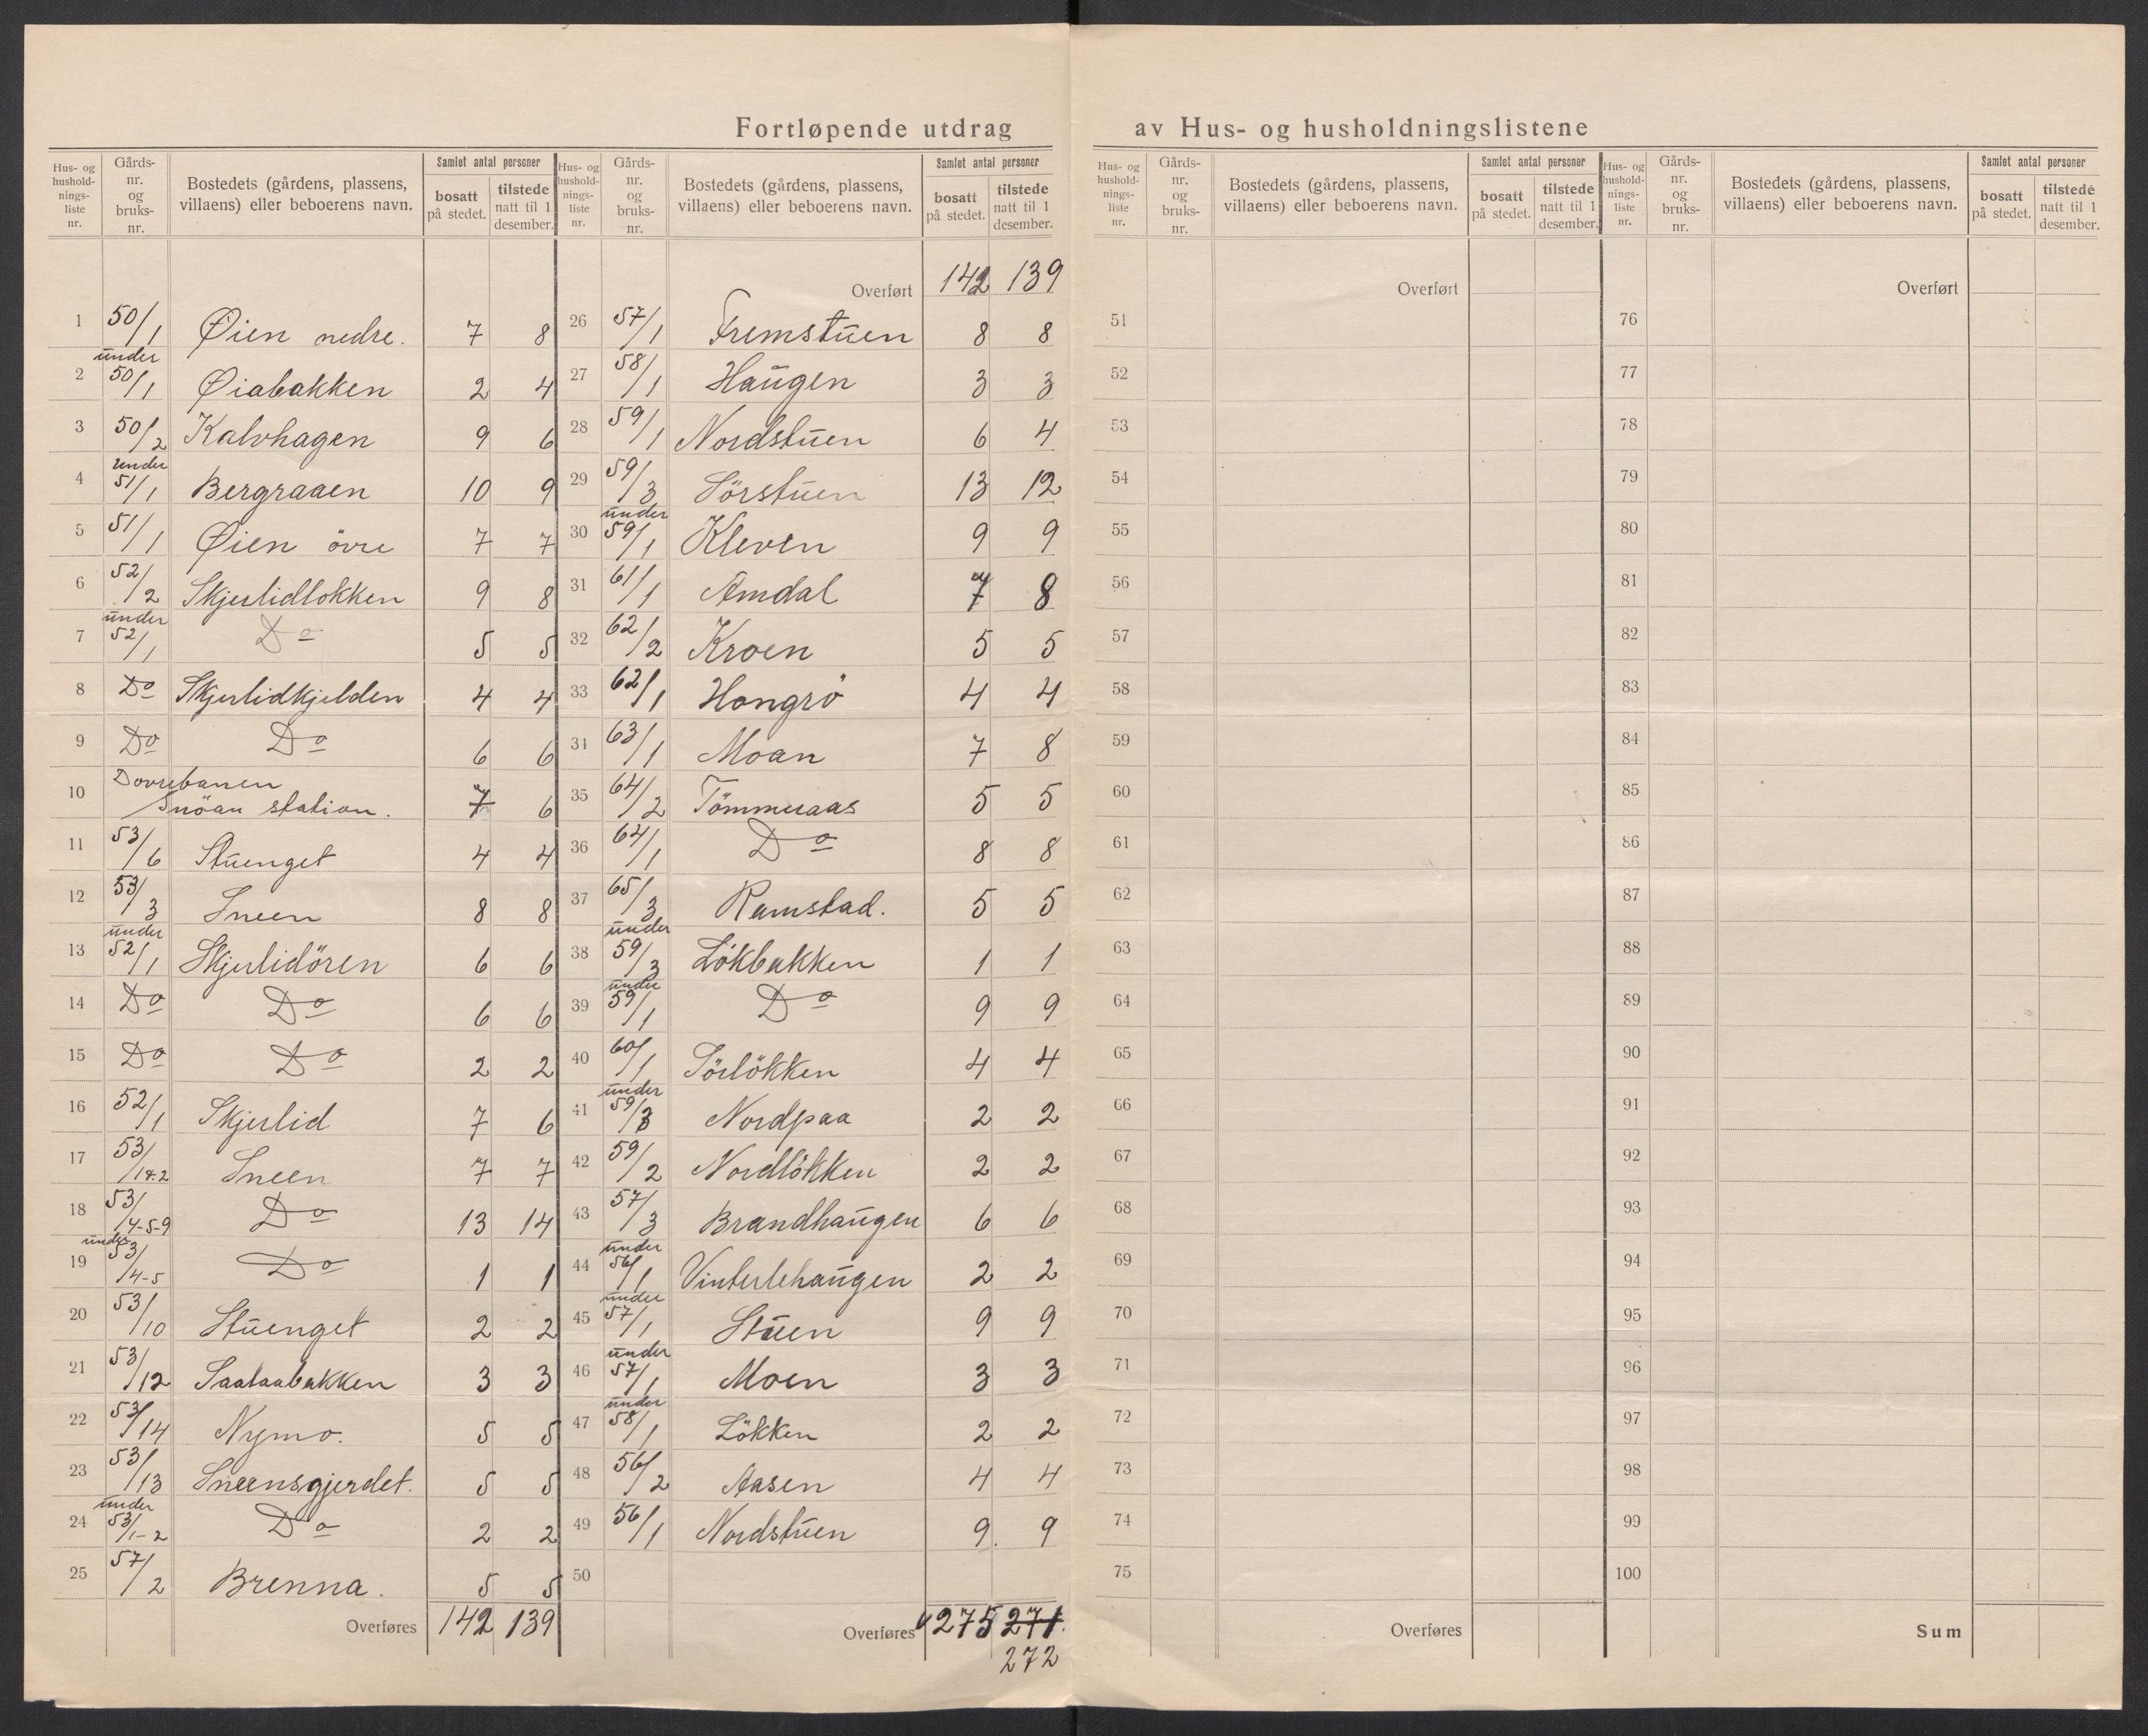 Fortløpende utdrag av Hus- og husholdningslistene
Hus- og hushold-nings-liste nr. Gårds-nr. og bruks-nr. Bostedets (gårdens, plassens, villaens) eller beboerens navn. Samlet antal personer bosatt på stedet. tilstede natt til 1 desember.
1 50/1 Øien nedre. 7 8
2 under 50/1 Øiabakken 2 4
3 50/2 Kalvhagen 9 6
4 under 51/1 Bergraaen 10 9
5 51/1 Øien övre 7 7
6 52/2 Skjerlidlokken 9 8
7 under 52/1 Do 5 5
8 Do Skjerlidkjelden 4 4
9 Do Do 6 6
10 Dovrebanen
Snöan station. 7 6
11 53/6 Stuenget 4 4
12 53/3 Sneen 8 8
13 under 52/1 Skjerlidören 6 6
14 Do Do 6 6
15 Do Do 2 2
16 52/1 Skjerlid 7 6
17 53/1&2 Sneen 7 7
18 53/4-5-9 Do 13 14
19 under 53/4-5 Do 1 1
20 53/10 Stuenget 2 2
21 53/12 Saataabakken 3 3
22 53/14 Nymo. 5 5
23 53/13 Sneensgjerdet. 5 5
24 under 53/1-2 Do 2 2
25 57/2 Brenna. 5 5
Overføres 142 139
Hus- og hushold-nings-liste nr. Gårds-nr. og bruks-nr. Bostedets (gårdens, plassens, villaens) eller beboerens navn. Samlet antal personer bosatt på stedet. tilstede natt til 1 desember.
Overført 142 139
26 57/1 Fremstuen 8 8
27 58/1 Haugen 3 3
28 59/1 Nordstuen 6 4
29 59/3 Sörstuen 13 12
30 under 59/1 Kleven 9 9
31 61/1 Amdal 7 8
32 62/2 Kroen 5 5
33 62/1 Hongrö 4 4
34 63/1 Moan 7 8
35 64/2 Tömmeraas 5 5
36 64/1 Do 8 8
37 65/3 Ramstad. 5 5
38 under 59/3 Lökbakken 1 1
39 under 59/1 Do 9 9
40 60/1 Sörlökken 4 4
41 under 59/3 Nordpaa 2 2
42 59/2 Nordlökken 2 2
43 57/3 Brandhaugen 6 6
44 under 56/1 Vinterlehaugen 2 2
45 under 57/1 Stuen 9 9
46 under 57/1 Moen 3 3
47 under 58/1 Lökken 2 2
48 56/2 Aasen 4 4
49 56/1 Nordstuen 9. 9
50
Overføres 275 271.
272
Hus- og hushold-nings-liste nr. Gårds-nr. og bruks-nr. Bostedets (gårdens, plassens, villaens) eller beboerens navn. Samlet antal personer bosatt på stedet. tilstede natt til 1 desember.
Overført
51
52
53
54
55
56
57
58
59
60
61
62
63
64
65
66
67
68
69
70
71
72
73
74
75
Overføres
Hus- og hushold-nings-liste nr. Gårds-nr. og bruks-nr. Bostedets (gårdens, plassens, villaens) eller beboerens navn. Samlet antal personer bosatt på stedet. tilstede natt til 1 desember.
Overført
76
77
78
79
80
81
82
83
84
85
86
87
88
89
90
91
92
93
94
95
96
97
98
99
100
Sum